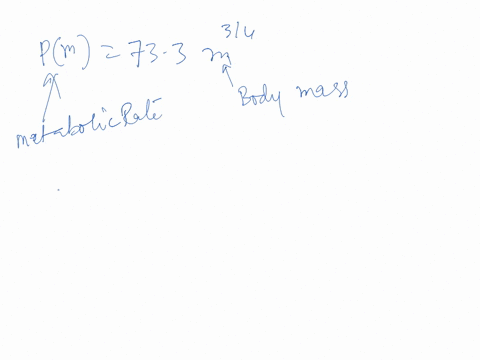 P(m) = 73.3 m^3/4
metabolic Rate
Body mass